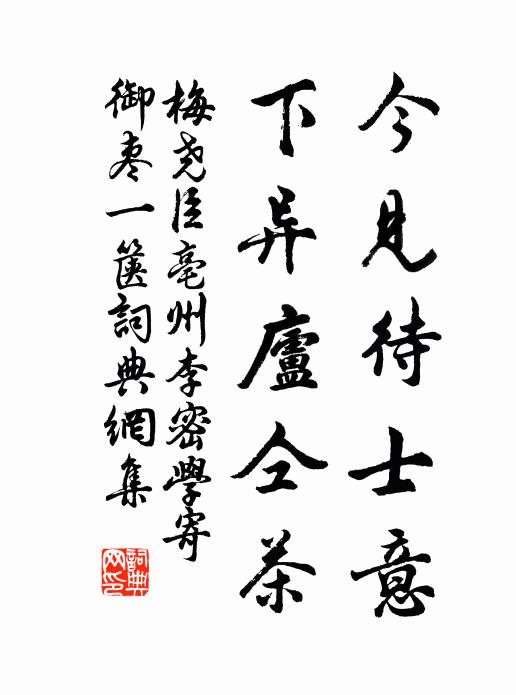 今見待士意
下异廬仝茶
梅尧臣亳州李密學寄
御枣一篋詞典網集
詞典网印